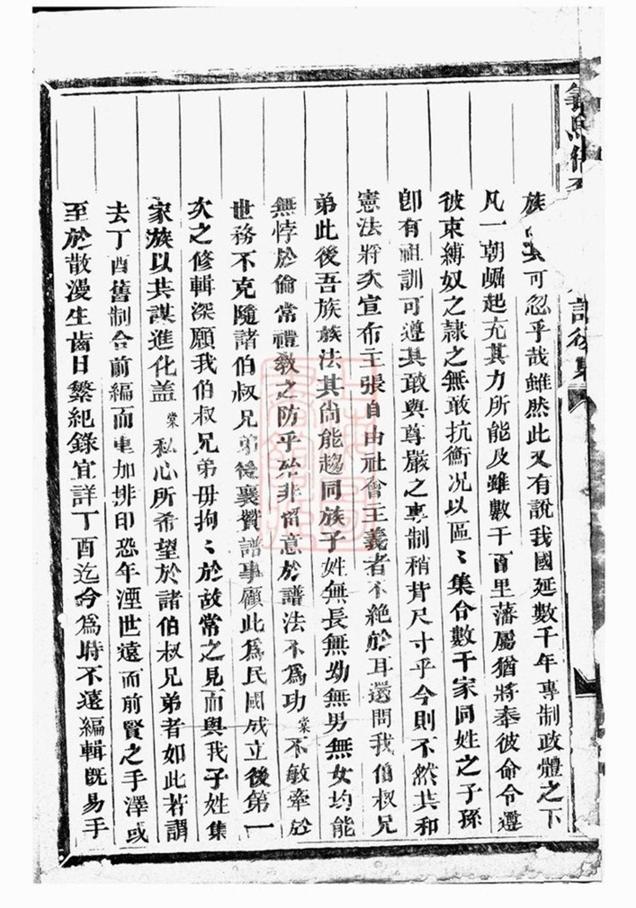 族可忽乎哉雖然此又有說我國延數千年專制政體之下
凡一朝崛起充其力所能及雖數千百里藩屬猶將奉彼命令遵
彼束縛奴之隸之無敢抗衡况以區〻集合數千家同姓之子孫
卽有祖訓可遵其敢與尊嚴之專制稍背尺寸乎今則不然共和
憲法將次宣布主張自由社會主義者不絕於耳還問我伯叔兄
弟此後吾族族法其尙能趨同族子姓無長無幼無男無女均能
無悖於倫常禮敎之防乎殆非留意於譜法不爲功棠不敏牽於
世務不克隨諸伯叔兄弟後襄贊譜事顧此爲民國成立後第一
次之修輯深願我伯叔兄弟毋拘〻於故常之見而與我子姓集
家族以共謀進化盖棠私心所希望於諸伯叔兄弟者如此若謂
去丁酉舊制合前編而重加排印恐年湮世遠而前賢之手澤或
至於散漫生齒日繁紀錄宜詳丁酉迄今爲時不遠編輯旣易手